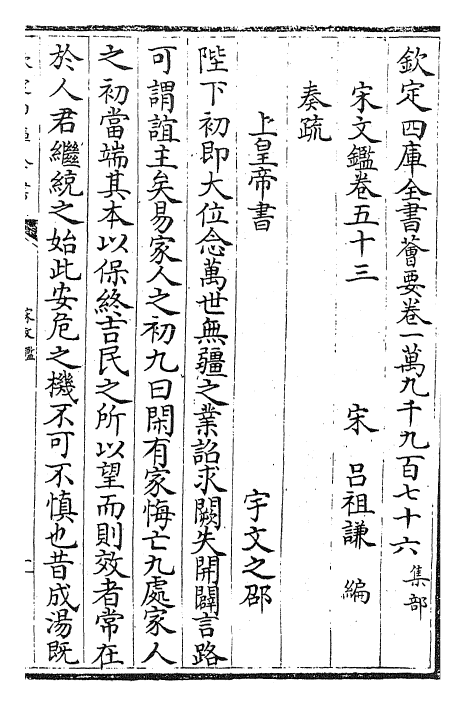 欽定四庫全書薈要卷一萬九千九百七十六 集部
宋文鑑卷五十三 宋 呂祖謙 編
奏疏
上皇帝書 宇文之邵
陛下初即大位念萬世無疆之業詔求闕失開闢言路
可謂誼主矣易家人之初九曰閑有家悔亡九處家人
之初當端其本以保終吉民之所以望而則效者常在
於人君繼統之始此安危之機不可不慎也昔成湯既
宋文鑑